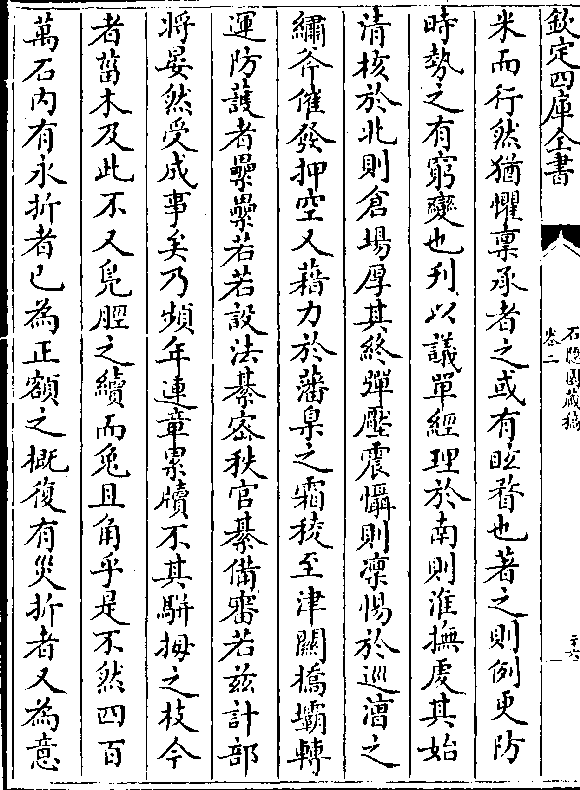 欽定四庫全書
石隱園藏稿
卷二
二十六
米而行然猶懼稟承者之或有眩瞀也著之則例更防
時勢之有窮變也刋以議單經理於南則淮撫處其始
清核於北則倉塲厚其終彈壓震懾則凛惕於巡漕之
繡斧催發抑空又藉力於藩臬之霜稜至津關橋壩轉
運防護者纍纍若若設法綦宻秩官綦備審若兹計部
將晏然受成事矣乃頻年連章累牘不其駢拇之枝今
者菑木及此不又鳬脛之續而兔且角乎是不然四百
萬石内有永折者已為正額之槪復有災折者又為意